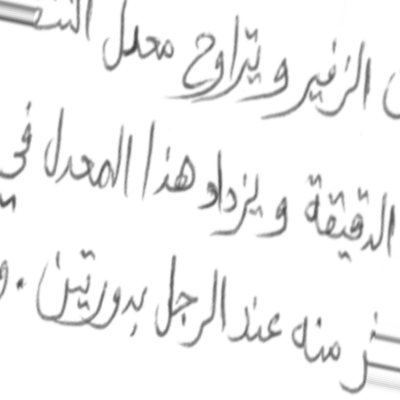 الزفير ويتراوح معدل
الدقيقة ويزداد هذا المعدل في
منه عند الرجل بدورتين .